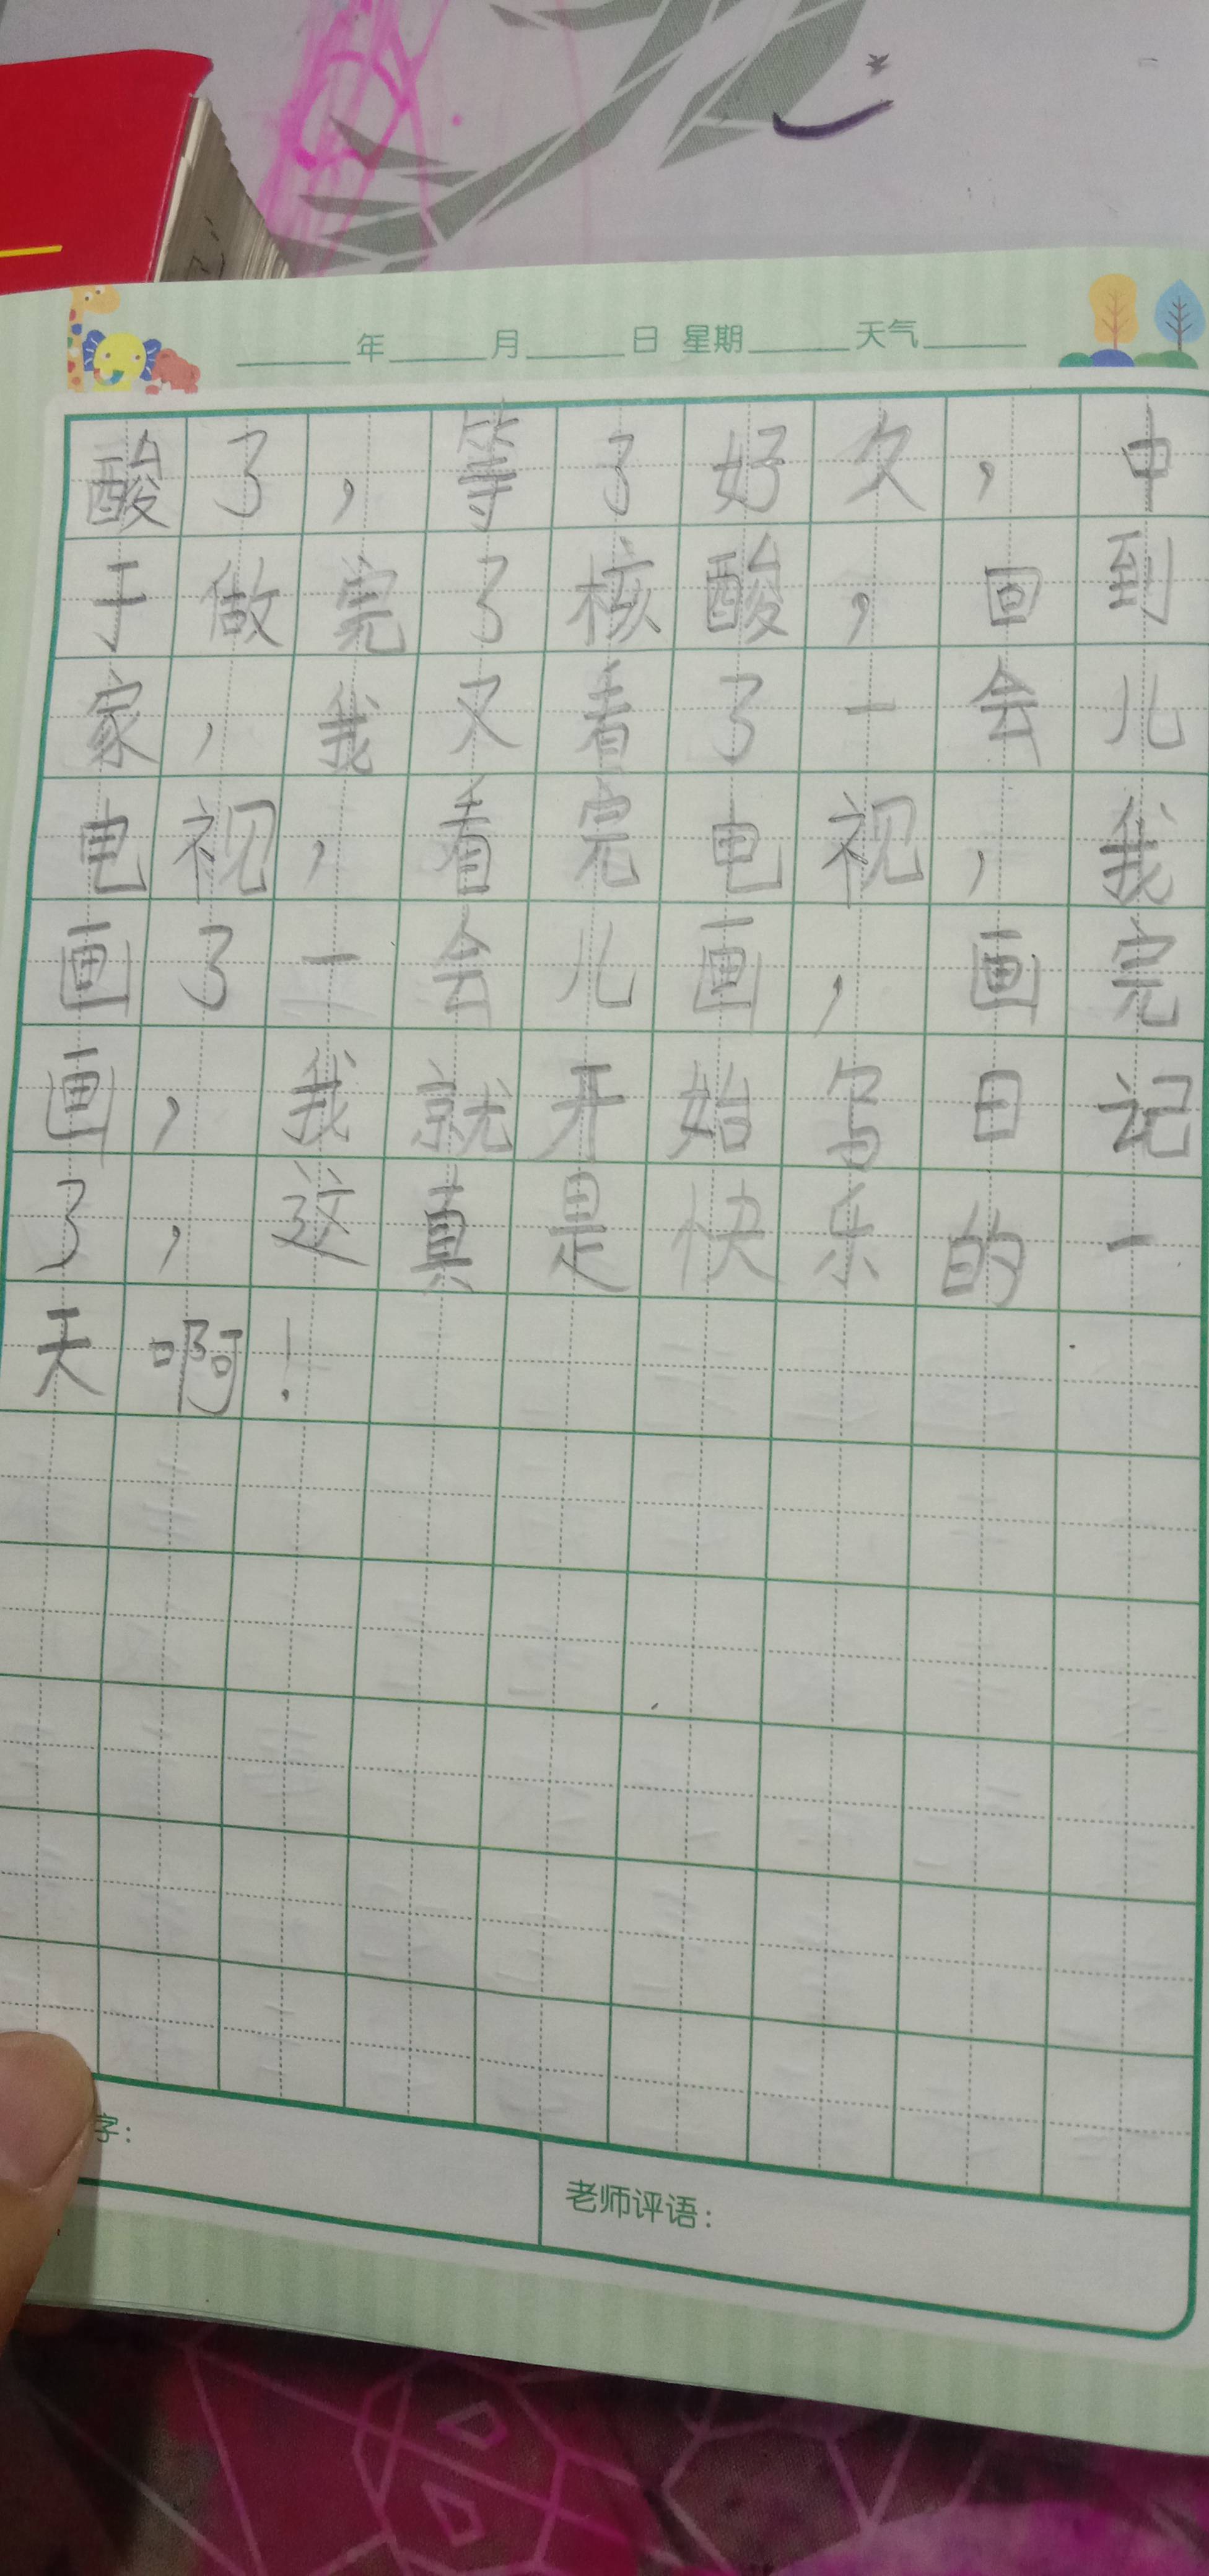 年 月 日 星期 天气
酸了，等了好久，中
于做完了核酸，回到
家，我又看了一会儿
电视，看完电视，我
画了一会儿画，画完
画，我就开始写日记
了，这真是快乐的一
天啊！
字：
老师评语：